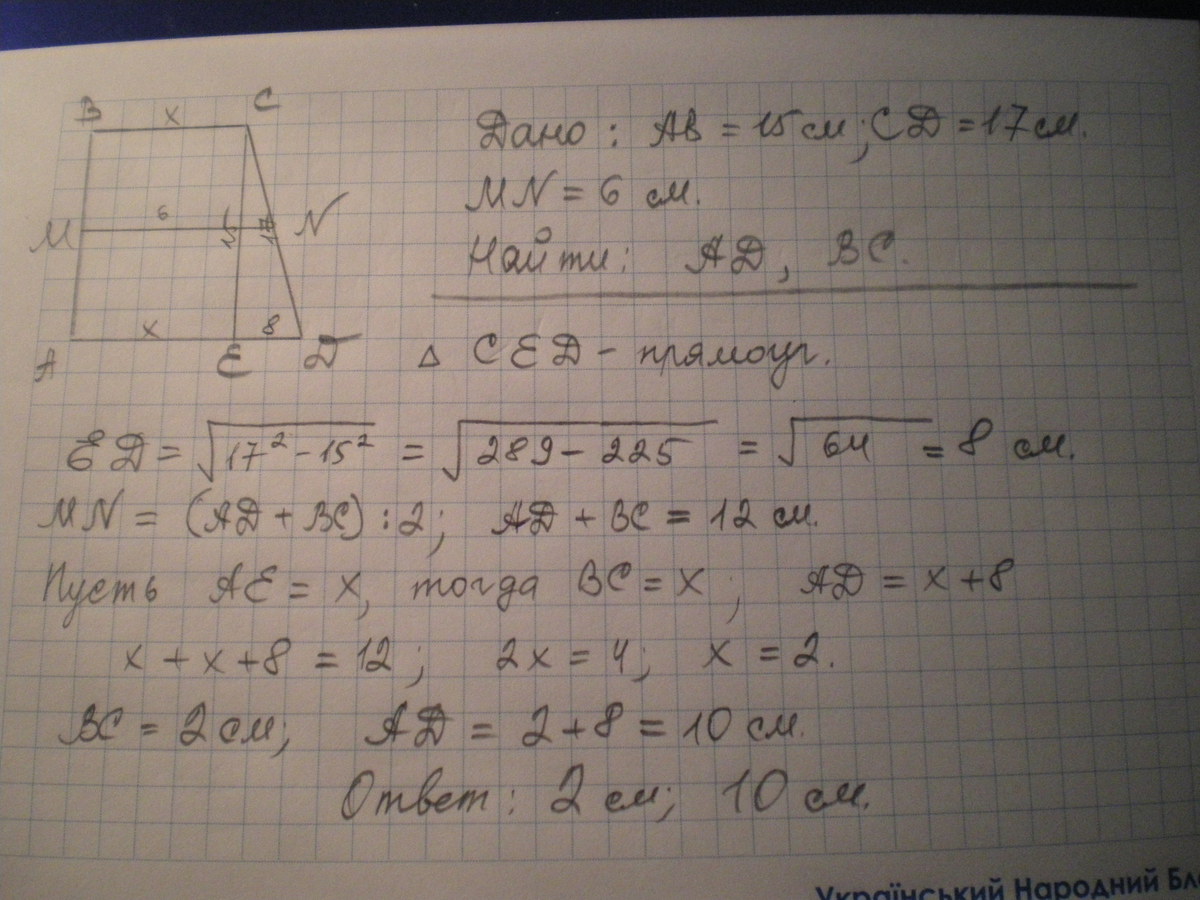 B x C
Дано: AB = 15 см; CD = 17 см.
MN = 6 см.
M 6 15 17 N
Найти: AD, BC.
x 8
A E D
Δ CED - прямоуг.
ED = √17² - 15² = √289 - 225 = √64 = 8 см.
MN = (AD + BC) : 2; AD + BC = 12 см.
Пусть AE = x, тогда BC = x; AD = x + 8
x + x + 8 = 12; 2x = 4; x = 2.
BC = 2 см; AD = 2 + 8 = 10 см.
Ответ: 2 см; 10 см.
Український Народний Бл